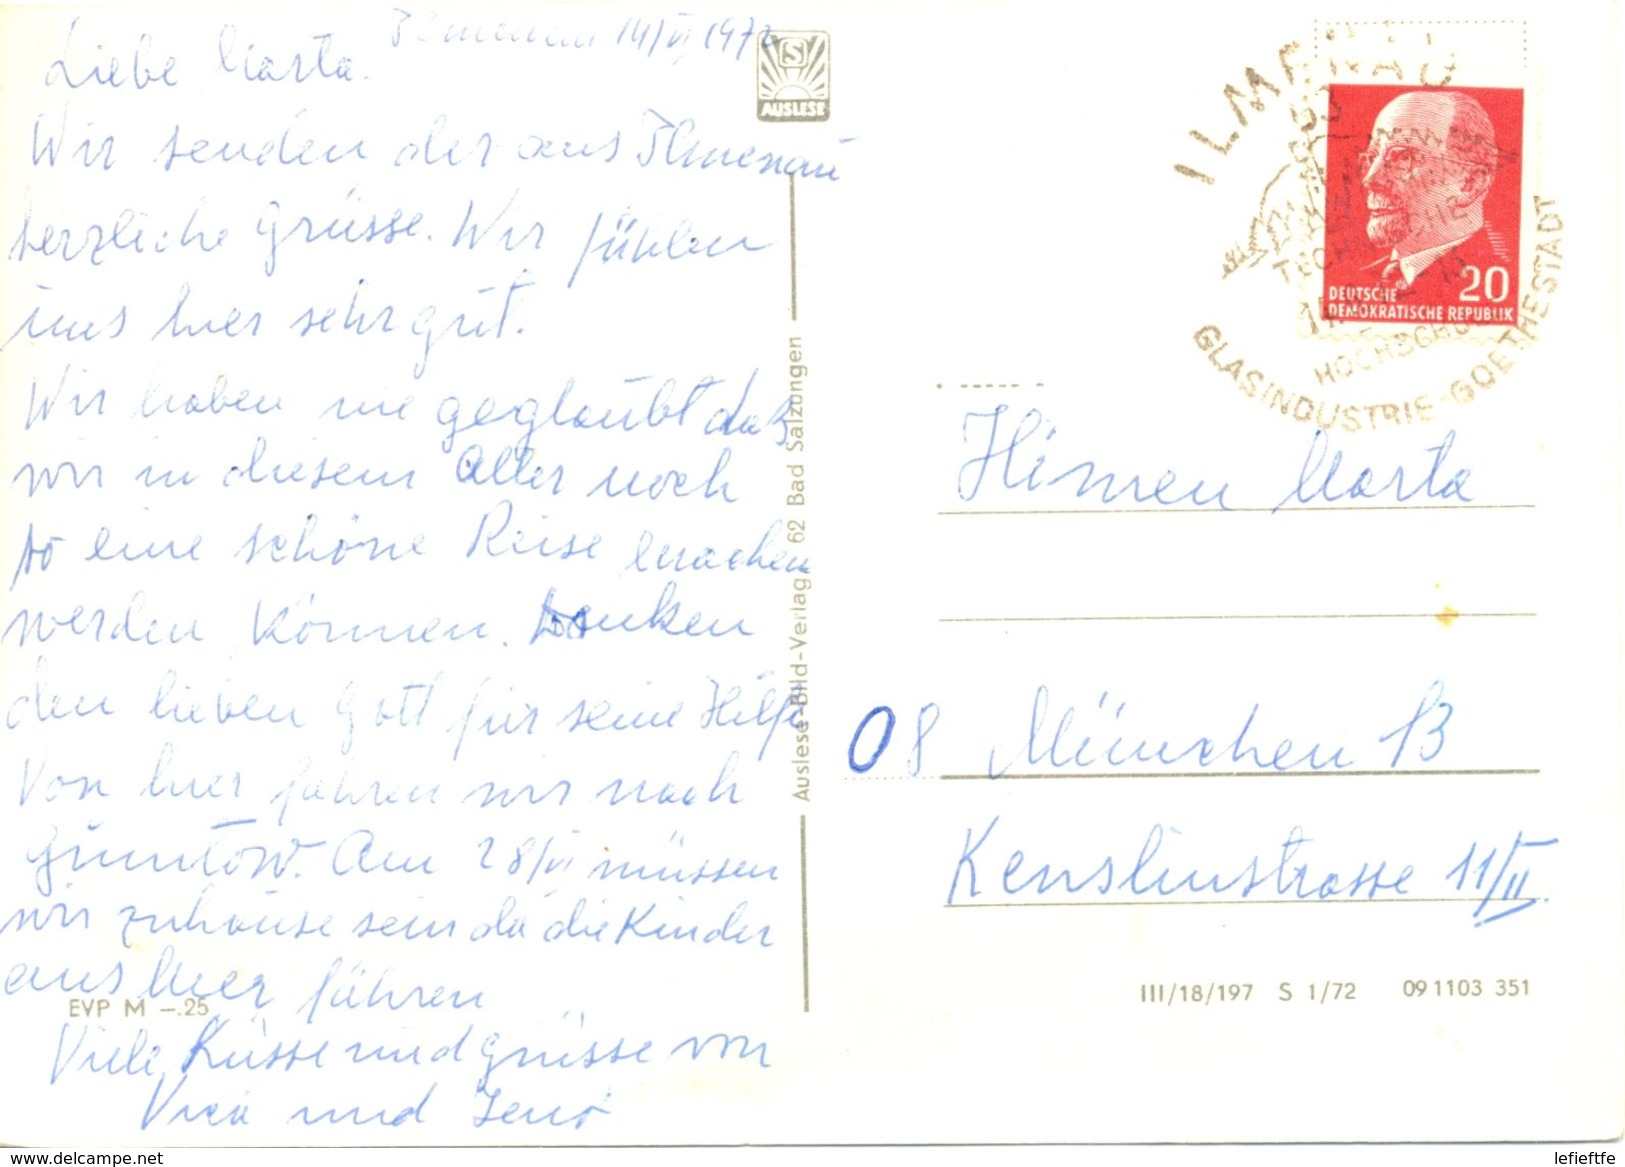 Ilmenau 14/VI 1972
Liebe Marta.
Wir senden dir aus Ilmenau
herzliche Grüsse. Wir fühlen
uns hier sehr gut.
Wir haben nie geglaubt daß
wir in diesem Alter noch
so eine schöne Reise machen
werden können. Danken
den lieben Gott für seine Hilfe
Von hier fahren wir nach
Guntow. Am 28/VI müssen
wir zuhause sein da die Kinder
aus hier fahren
Viele Küsse und grüsse von
und Jenö
S
AUSLESE
Auslese-Bild-Verlag, 62 Bad Salzungen
EVP M –.25
ILMENAU
TECHNISCHE
HOCHSCHULE
GLASINDUSTRIE-GOETHESTADT
20
DEUTSCHE
DEMOKRATISCHE REPUBLIK
Himen Marta
08 München 13
Kenslinstrasse 11/II.
III/18/197 S 1/72 09 1103 351
delcampe.net
lefieftfe